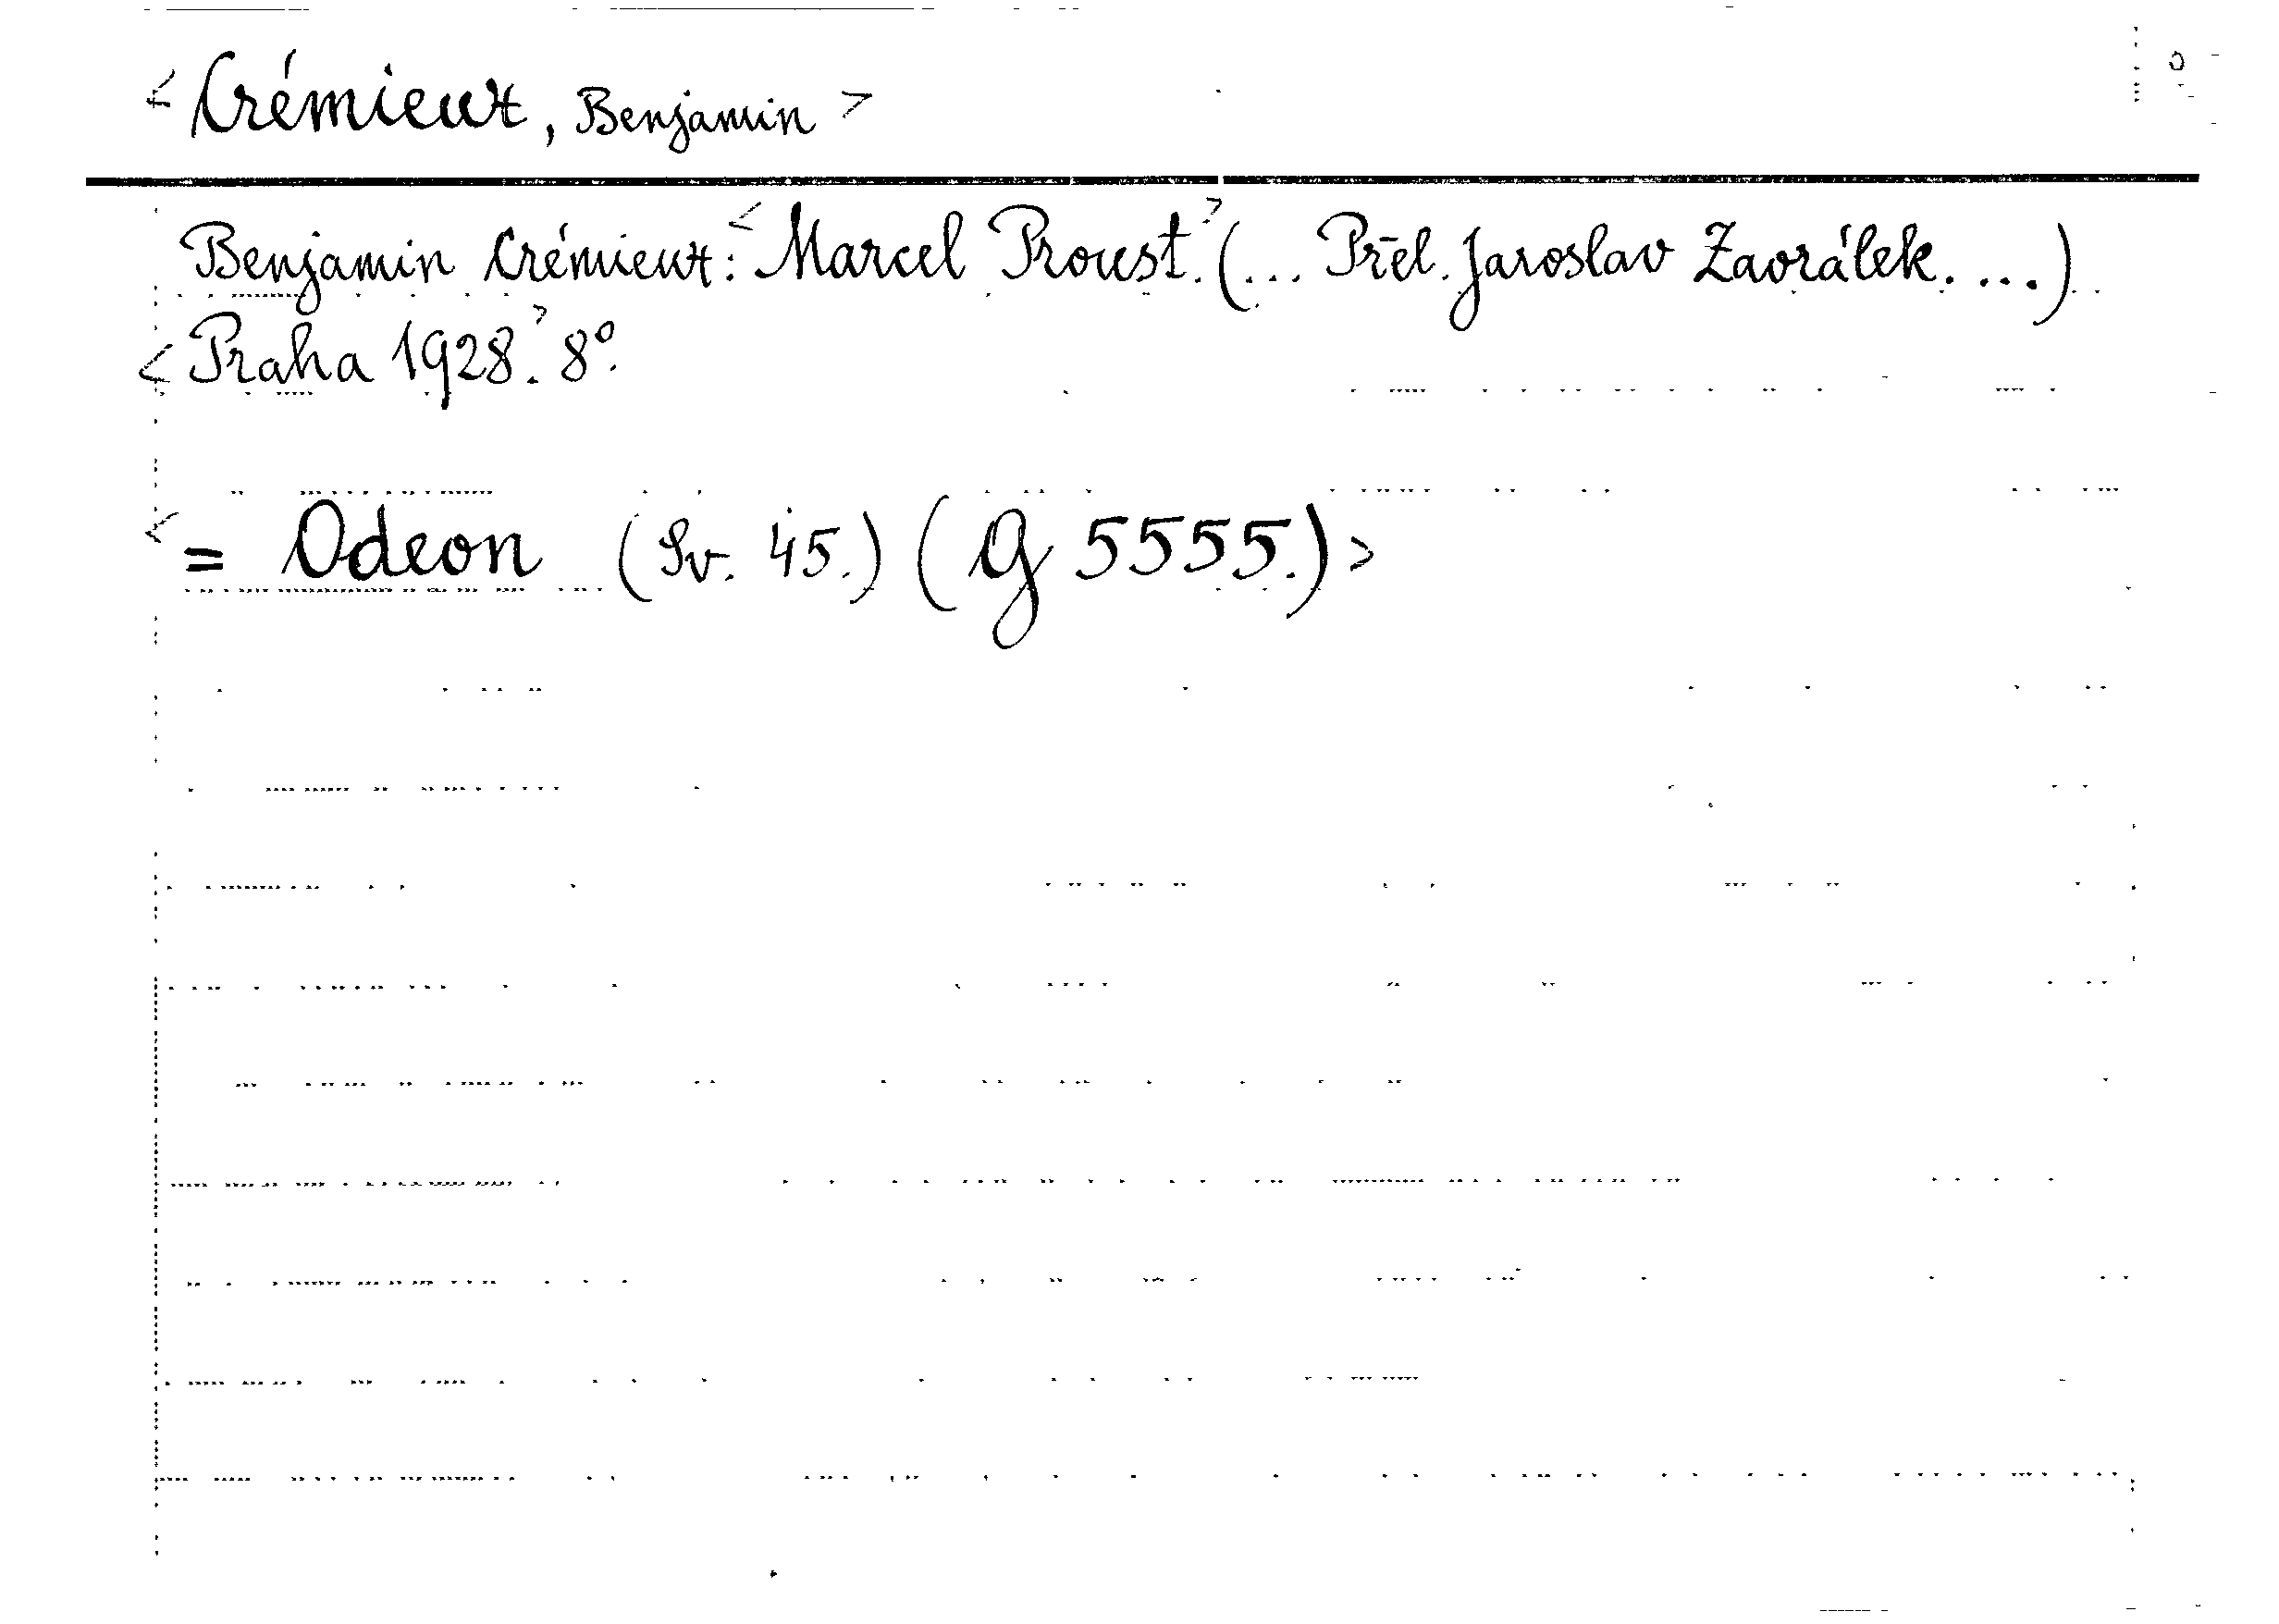 < Crémieux, Benjamin >
Benjamin Crémieux: < Marcel Proust. > (... Přel. Jaroslav Zaorálek. ...)
< Praha 1928. > 8°.
< = Odeon (Sv. 45.) (G 5555.) >